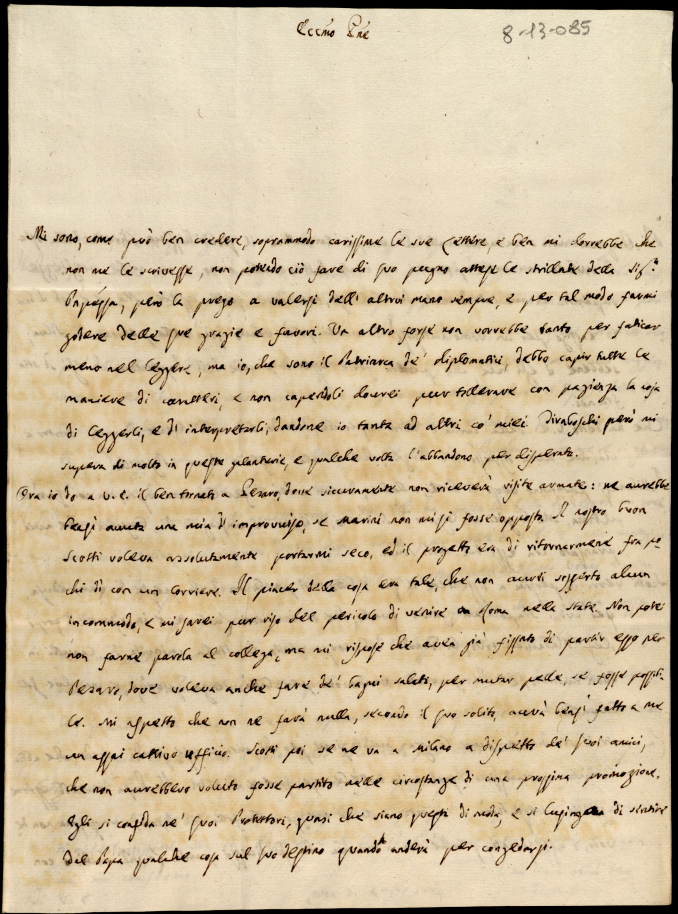 Eccmo Pne
8-13-085
Mi sono, come può ben credere, soprammodo carissime le sue Lettere e ben mi dorrebbe che
non me le scrivesse, non potendo ciò fare di suo pugno attese le strillate della Sigra
Pnpessa, però la prego a valersi dell' altrui mano sempre, e per tal modo farmi
godere delle sue grazie e favori. Un altro forse non vorrebbe tanto per faticar
meno nel leggere, ma io, che sono il Patriarca de' diplomatici, debbo capir tutte le
maniere di caratteri, e non capendoli dovrei pur tollerare con pazienza la noja
di leggerli, e d' interpretarli, dandone io tanta ad altri co' miei. Tiraboschi però mi
supera di molto in queste galanterie, e qualche volta l'abbandono per disperato.
Ora io do a V. E. il ben tornato a Pesaro, dove sicuramente non riceverà visite armate: ne avrebbe
bensì avuta una mia d' improvviso, se Marini non mi si fosse opposto. Il nostro buon
Scotti voleva assolutamente portarmi seco, ed il progetto era di ritornarmene fra po-
chi dì con un Corriere. Il piacer della cosa era tale, che non avrei sofferto alcun
incommodo, e mi sarei pur riso del pericolo di venire in Roma nella State. Non potei
non farne parola al collega, ma mi rispose che avea già fissato di partir esso per
Pesaro, dove voleva anche fare de' bagni salati, per mutar pelle, se fosse possibi-
le. Mi aspetto che non ne farà nulla, secondo il suo solito, avrà bensì fatto a me
un assai cattivo ufficio. Scotti poi se ne va a Milano a dispetto de' suoi amici,
che non avrebbero voluto fosse partito nelle circostanze di una prossima promozione.
Egli si confida ne' suoi Protettori, quasi che siano gente di moda, e si lusinga di sentire
dal Papa qualche cosa sul suo destino quando anderà per congedarsi.